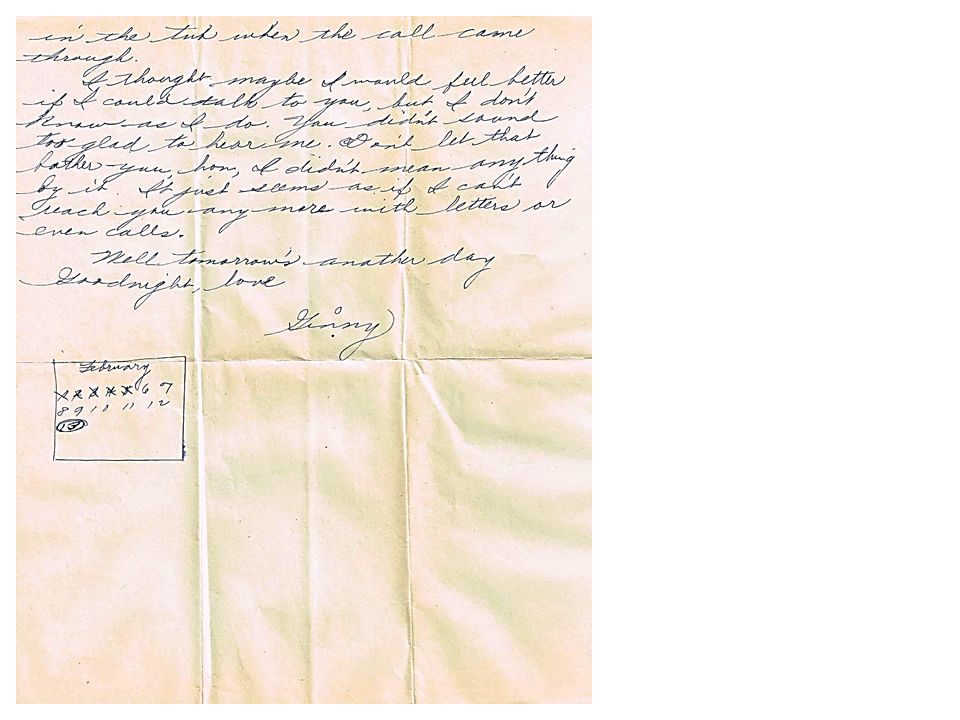 in the tub when the call came
through.
I thought maybe I would feel better
if I could talk to you, but I don't
know as I do. You didn't sound
too glad to hear me. Don't let that
bother you, hon, I didn't mean anything
by it. It just seems as if I can't
reach you any more with letters or
even calls.
Well tomorrow's another day
Goodnight, love
Ginny
February
6 7
8 9 10 11 12
13